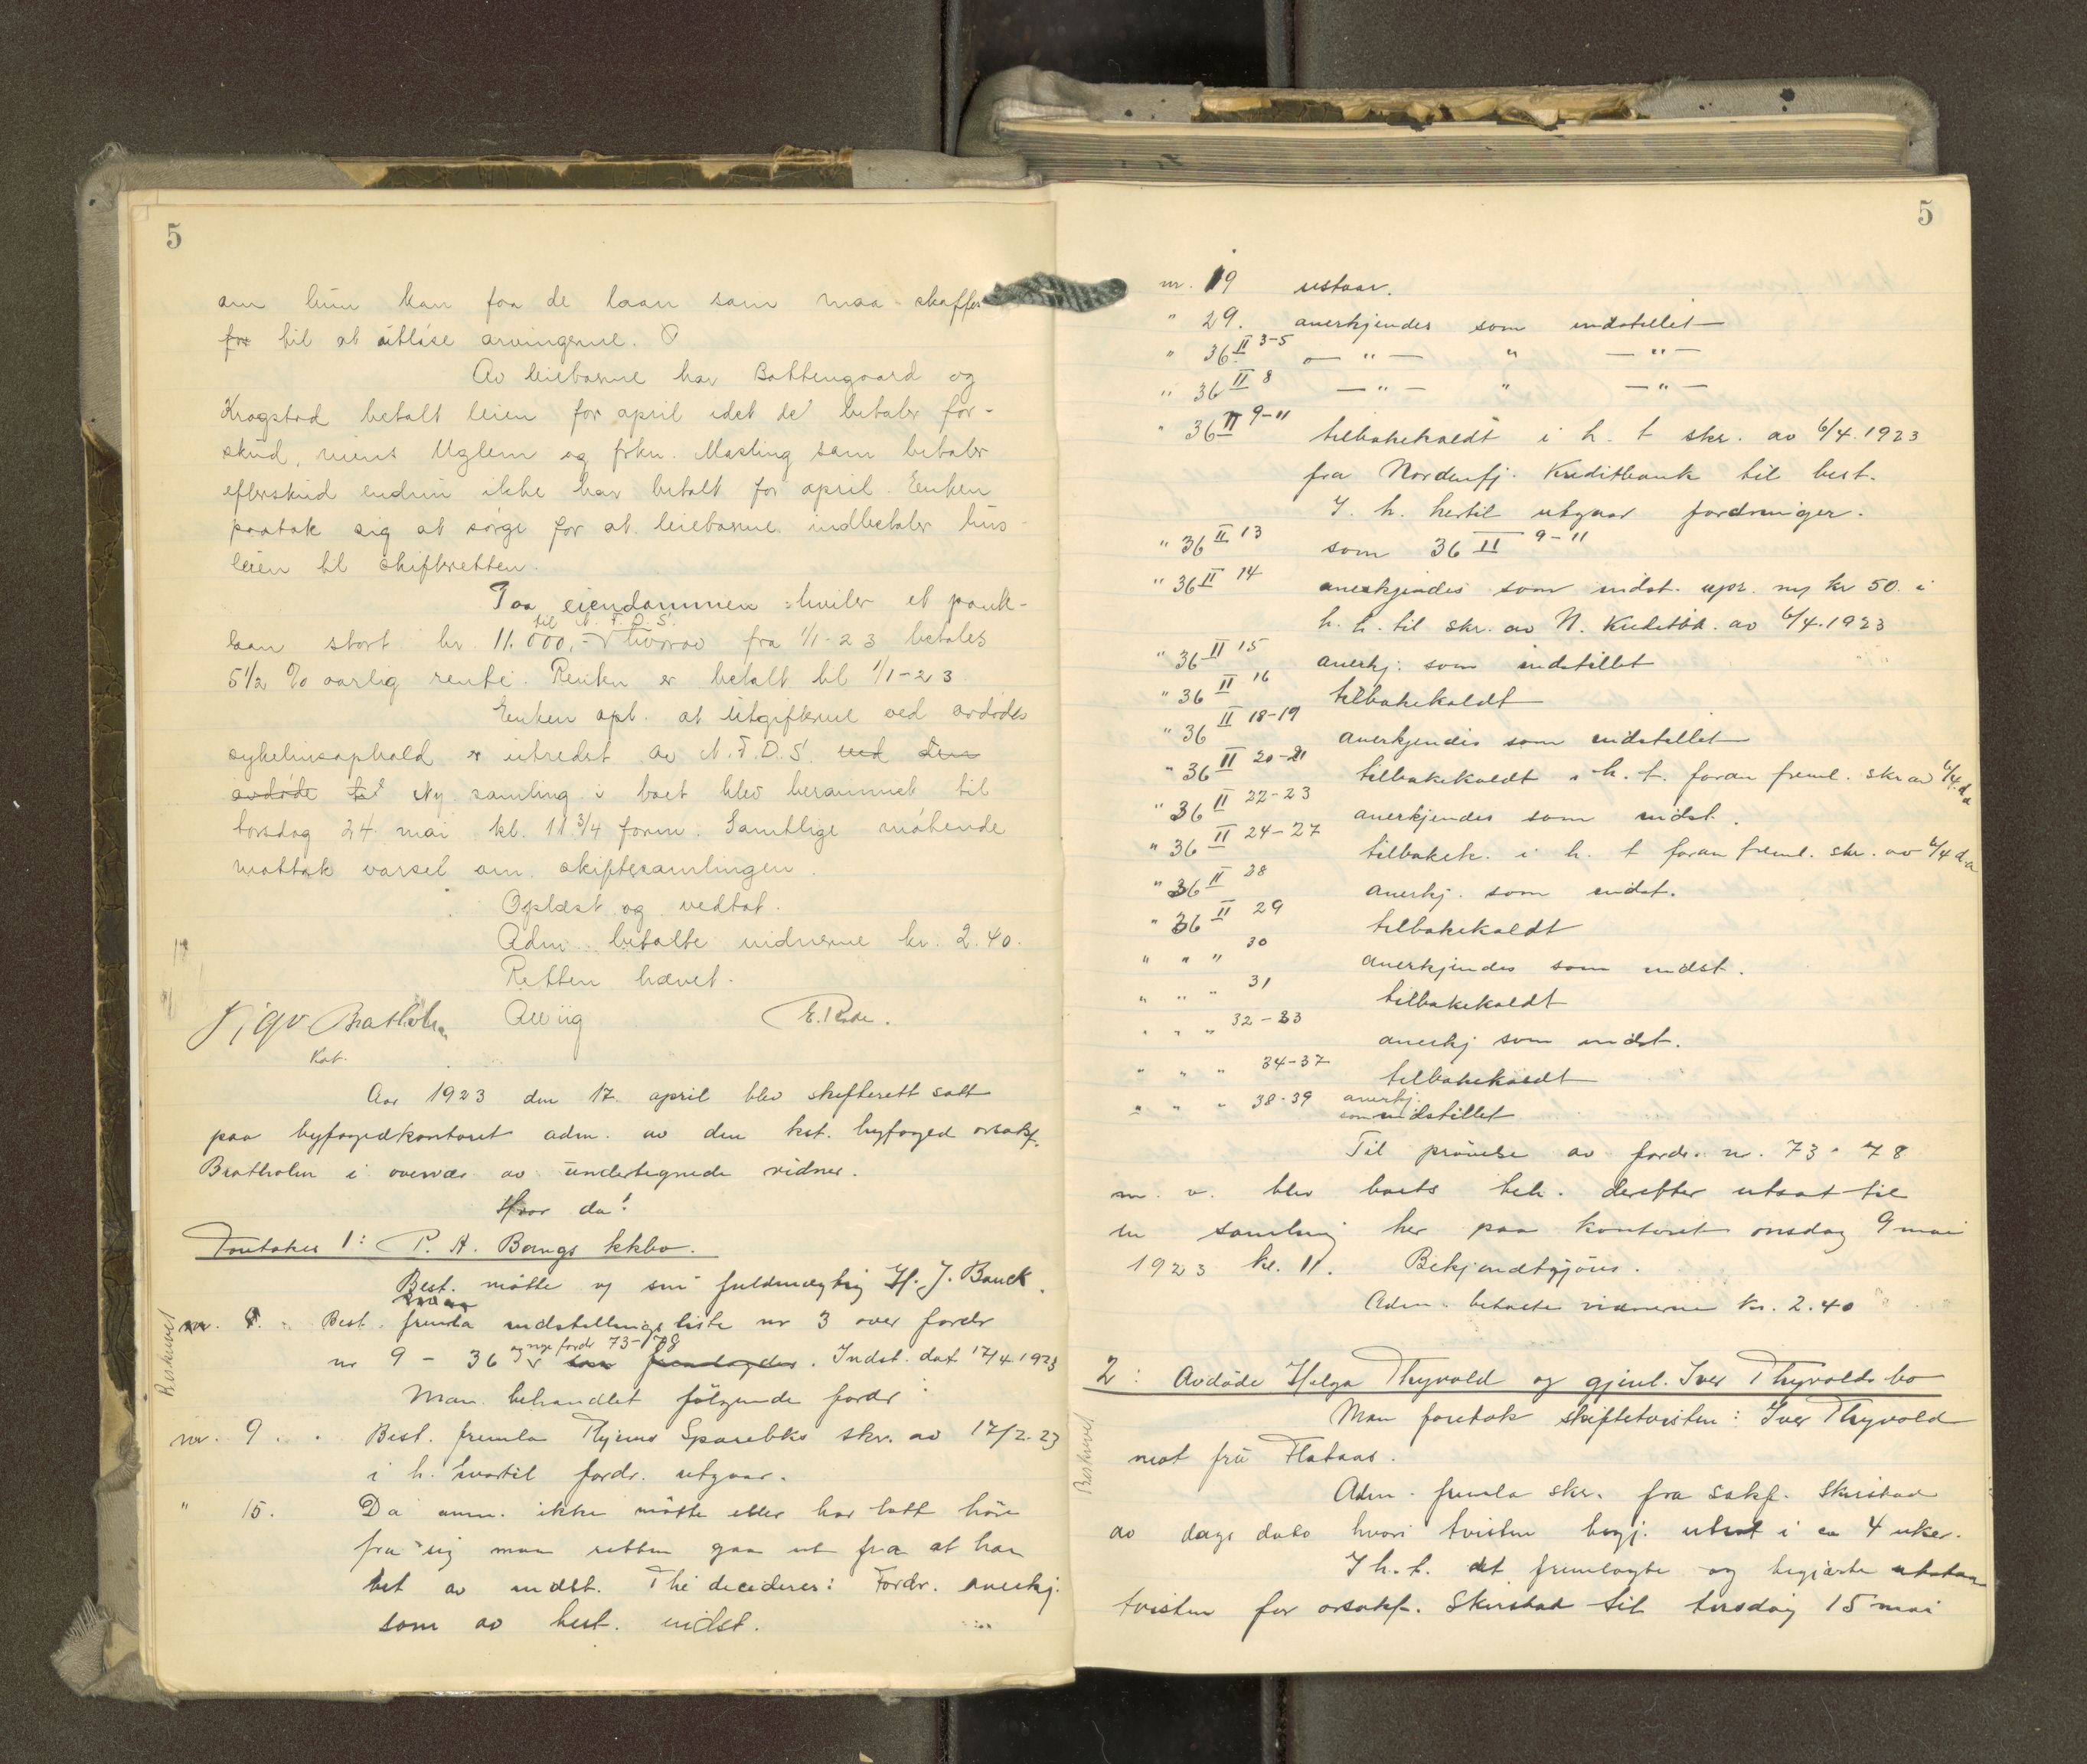 5
om hun kan faa de laan som maa skaffes
for til at utløse arvingerne.
Av leieboerne har Battengaard og
Krogstad betalt leien for april idet de betaler for-
skud, mens Uglem og frkn. Masling som betaler
efterskud endnu ikke har betalt for april. Enken
paatok sig at sørge for at leieboerne indbetaler hus-
leien til skifteretten.
Paa eiendommen hviler et pante-
til N.T.D.S.
laan stort kr. 11.000,- hvorav fra 1/1-23 betales
5 1/2 % aarlig rente. Renten er betalt til 1/1-23
Enken opl. at utgifterne ved avdødes
sykehusophold er utredet av N.T.D.S. ved den
avdøde Ny samling i boet blev berammet til
torsdag 24 mai kl. 11 3/4 form. Samtlige møtende
mottok varsel om skiftesamlingen.
Oplæst og vedtat.
Adm. betalte vidnerne kr. 2.40.
Retten hævet.
Viggo Bratholm
Kst.
E. Rode.
Aar 1923 den 17. april blev skifterett satt
paa byfogedkontoret adm. av den kst. byfoged orsakf.
Bratholm i overvær av undertegnede vidner.
Hvor da:
Foretokes 1: P. A. Bangs kkbo.
Best. møtte v sin fuldmægtig H. J. Bauck.
Beskrevet
nr. 9. Best. fremla indstillingsliste nr 3 over fordr
og nye fordr 73-78
nr 9 - 36 som fremlagdes. Indst. dat 17/4 1923
Man behandlet følgende fordr:
nr. 9. Best. fremla Sparebks skr. av 17/2-23
i h. hvortil fordr. utgaar.
" 15. Da anm. ikke møtte eller har latt høre
fra sig maa retten gaa ut fra at han
vet av indst. Thi decideres: Fordr. anerkj.
som av best. indst.
5
nr. 19 utstaar.
" 29. anerkjendes som indstillet
" 36 II 3-5 — " — " — " —
" 36 II 8 — " — " — " —
" 36 II 9-11 tilbakekaldt i h. t skr. av 6/4.1923
fra Nordenfj. Kreditbank til best.
I h. hertil utgaar fordringer.
" 36 II 13 som 36 II 9-11
" 36 II 14 anerkjendes som indst. upr. m kr 50. i
h. h. til skr. av N. Kreditbk. av 6/4.1923
" 36 II 15 anerkj. som indstillet
" 36 II 16 tilbakekaldt
" 36 II 18-19 anerkjendes som indstillet
" 36 II 20-21 tilbakekaldt i h. t. foran freml. skr av 6/4 d.a
" 36 II 22-23 anerkjendes som indst.
" 36 II 24-27 tilbakek. i h. t foran freml. skr. av 6/4 d.a
" 36 II 28 anerkj. som indst.
" 36 II 29 tilbakekaldt
" " " 30 anerkjendes som indst.
" " " 31 tilbakekaldt
" " " 32-33 anerkj som indst.
" " " 34-37 tilbakekaldt
" " " 38-39 anerkj.
som indstillet
Til prøvelse av fordr. nr. 73 - 78
m. v. blev boets beh. derefter utsat til
en samling her paa kontoret onsdag 9 mai
1923 kl. 11. Bekjendtgjøres.
Adm. betalte vidnerne kr. 2.40
2: Avdøde Helga Thyvold og gjenl. Iver Thyvolds bo
Man foretok skiftetvisten: Iver Thyvold
Beskrevet
mot fru Flataas.
Adm. fremla skr. fra sakf. Skirstad
av dags dato hvori tvisten begj. utsat i ca 4 uker.
I h. t. det fremlagte og begjærte utstaar
tvisten for orsakf. Skirstad til tirsdag 15 mai